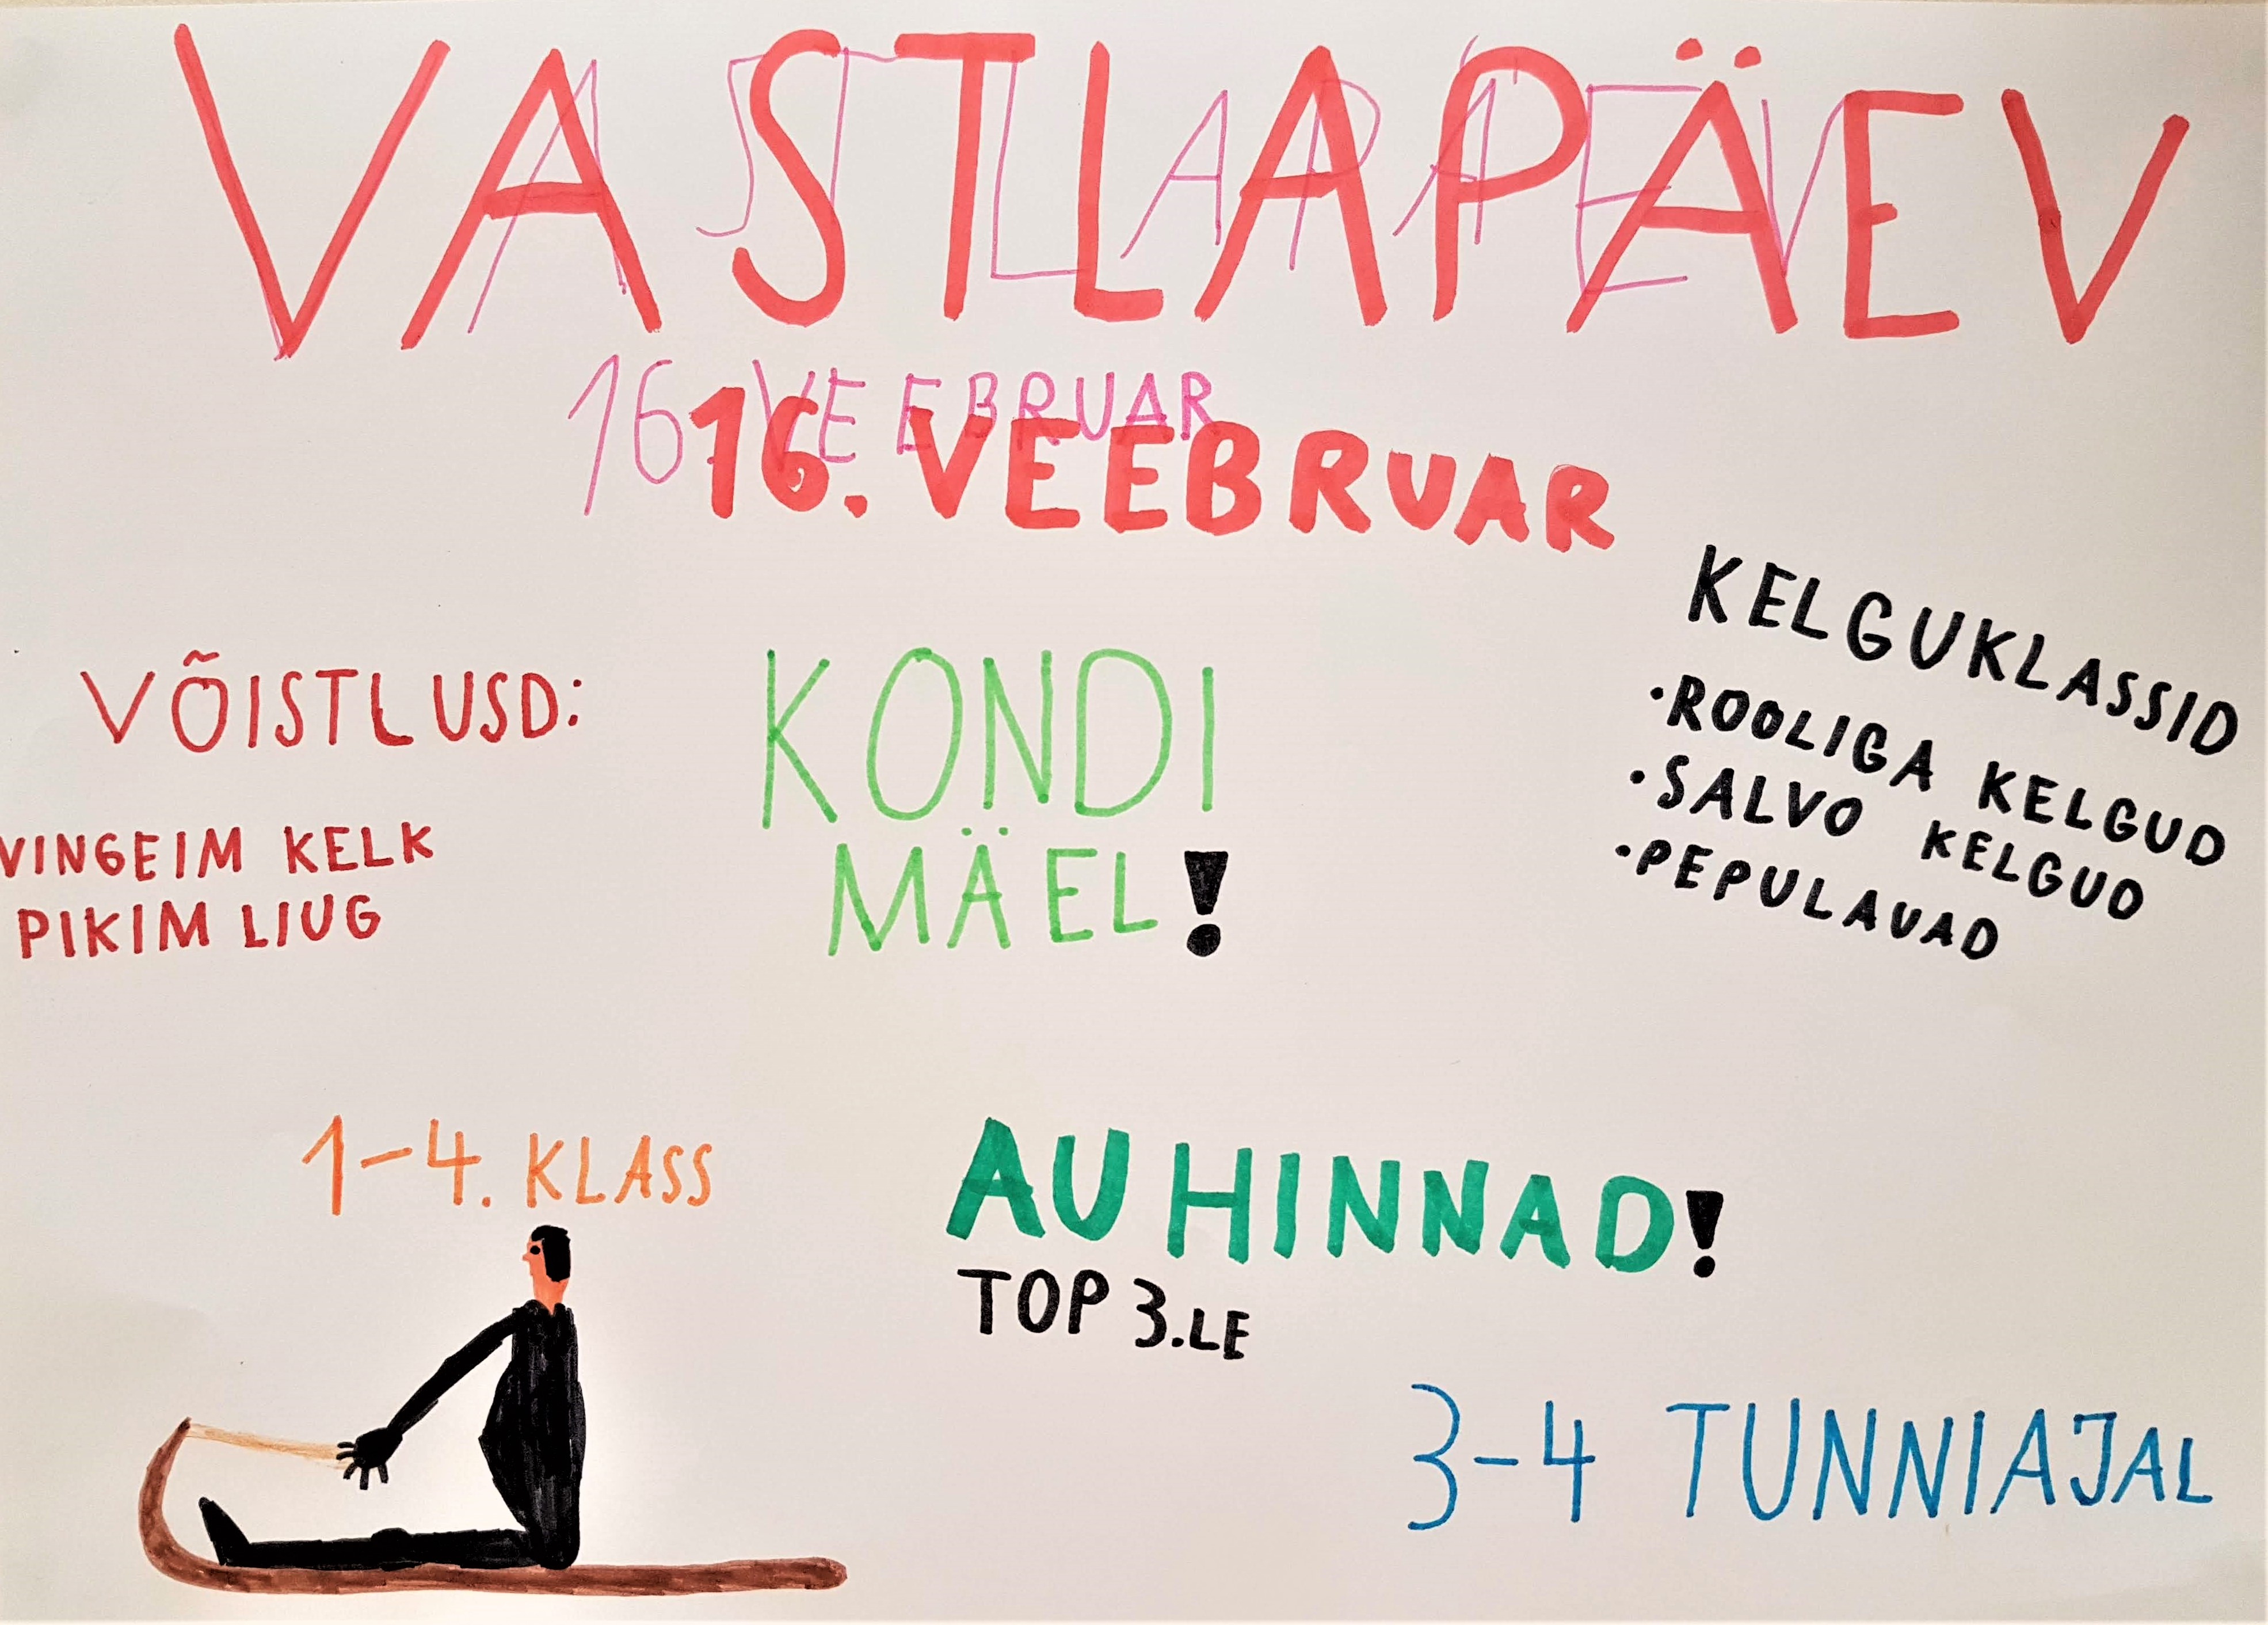 VASTLAPÄEV
16. VEEBRUAR
KELGUKLASSID
·ROOLIGA KELGUD
·SALVO KELGUD
·PEPULAUAD
VÕISTLUSD:
VINGEIM KELK
PIKIM LIUG
KONDI
MÄEL!
1-4. KLASS
AUHINNAD!
TOP 3.LE
3-4 TUNNIAJAL